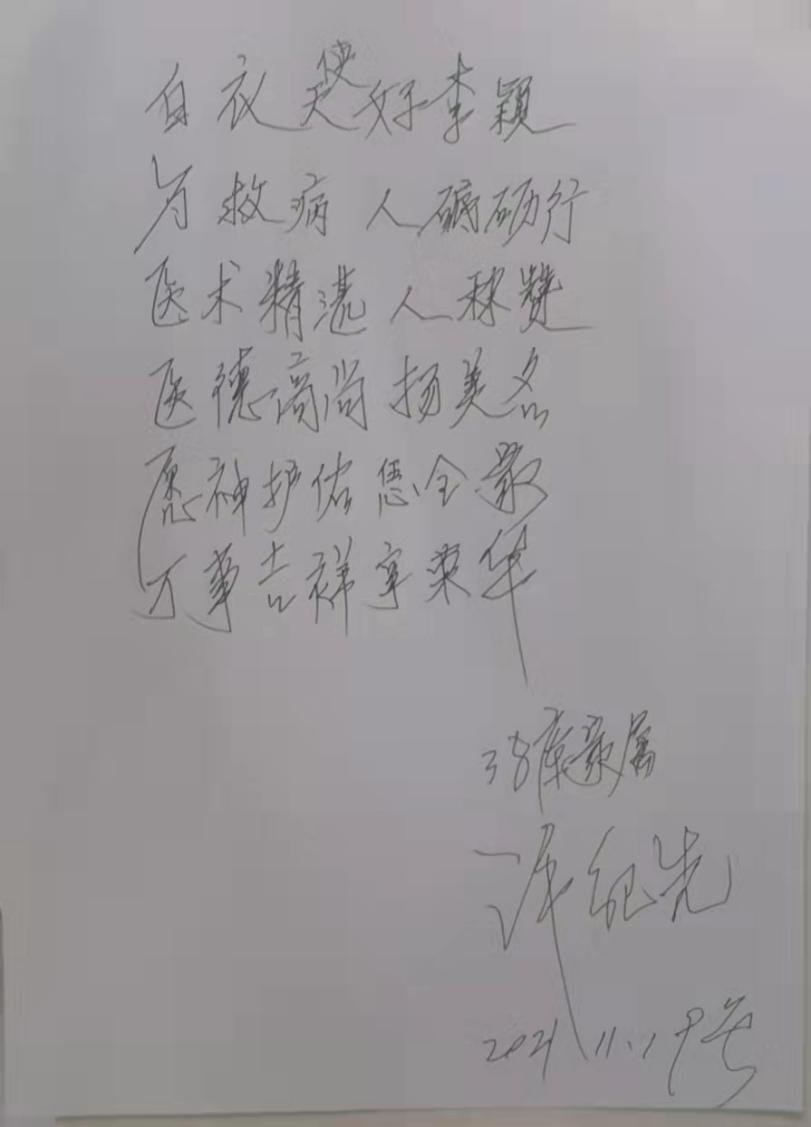 白衣天使好李颖
为救病人砥砺行
医术精湛人称赞
医德高尚扬美名
愿神护佑恁全家
万事吉祥享荣华
38床家属
许纪先
2021.11.19号